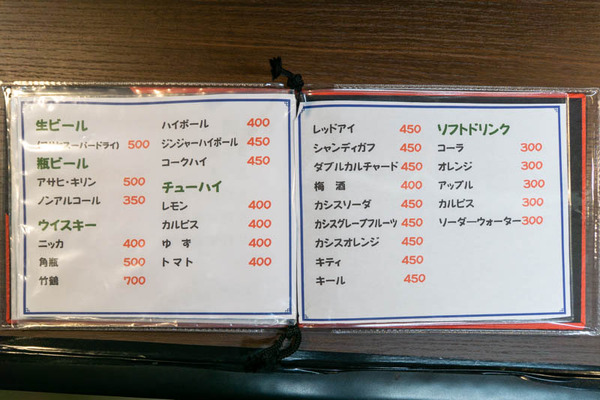 生ビール
スーパードライ) 500
瓶ビール
アサヒ・キリン 500
ノンアルコール 350
ウイスキー
ニッカ 400
角瓶 500
竹鶴 700
ハイボール 400
ジンジャーハイボール 450
コークハイ 450
チューハイ
レモン 400
カルピス 400
ゆず 400
トマト 400
レッドアイ 450
シャンディガフ 450
ダブルカルチャード 450
梅酒 400
カシスソーダ 450
カシスグレープフルーツ 450
カシスオレンジ 450
キティ 450
キール 450
ソフトドリンク
コーラ 300
オレンジ 300
アップル 300
カルピス 300
ソーダーウォーター 300